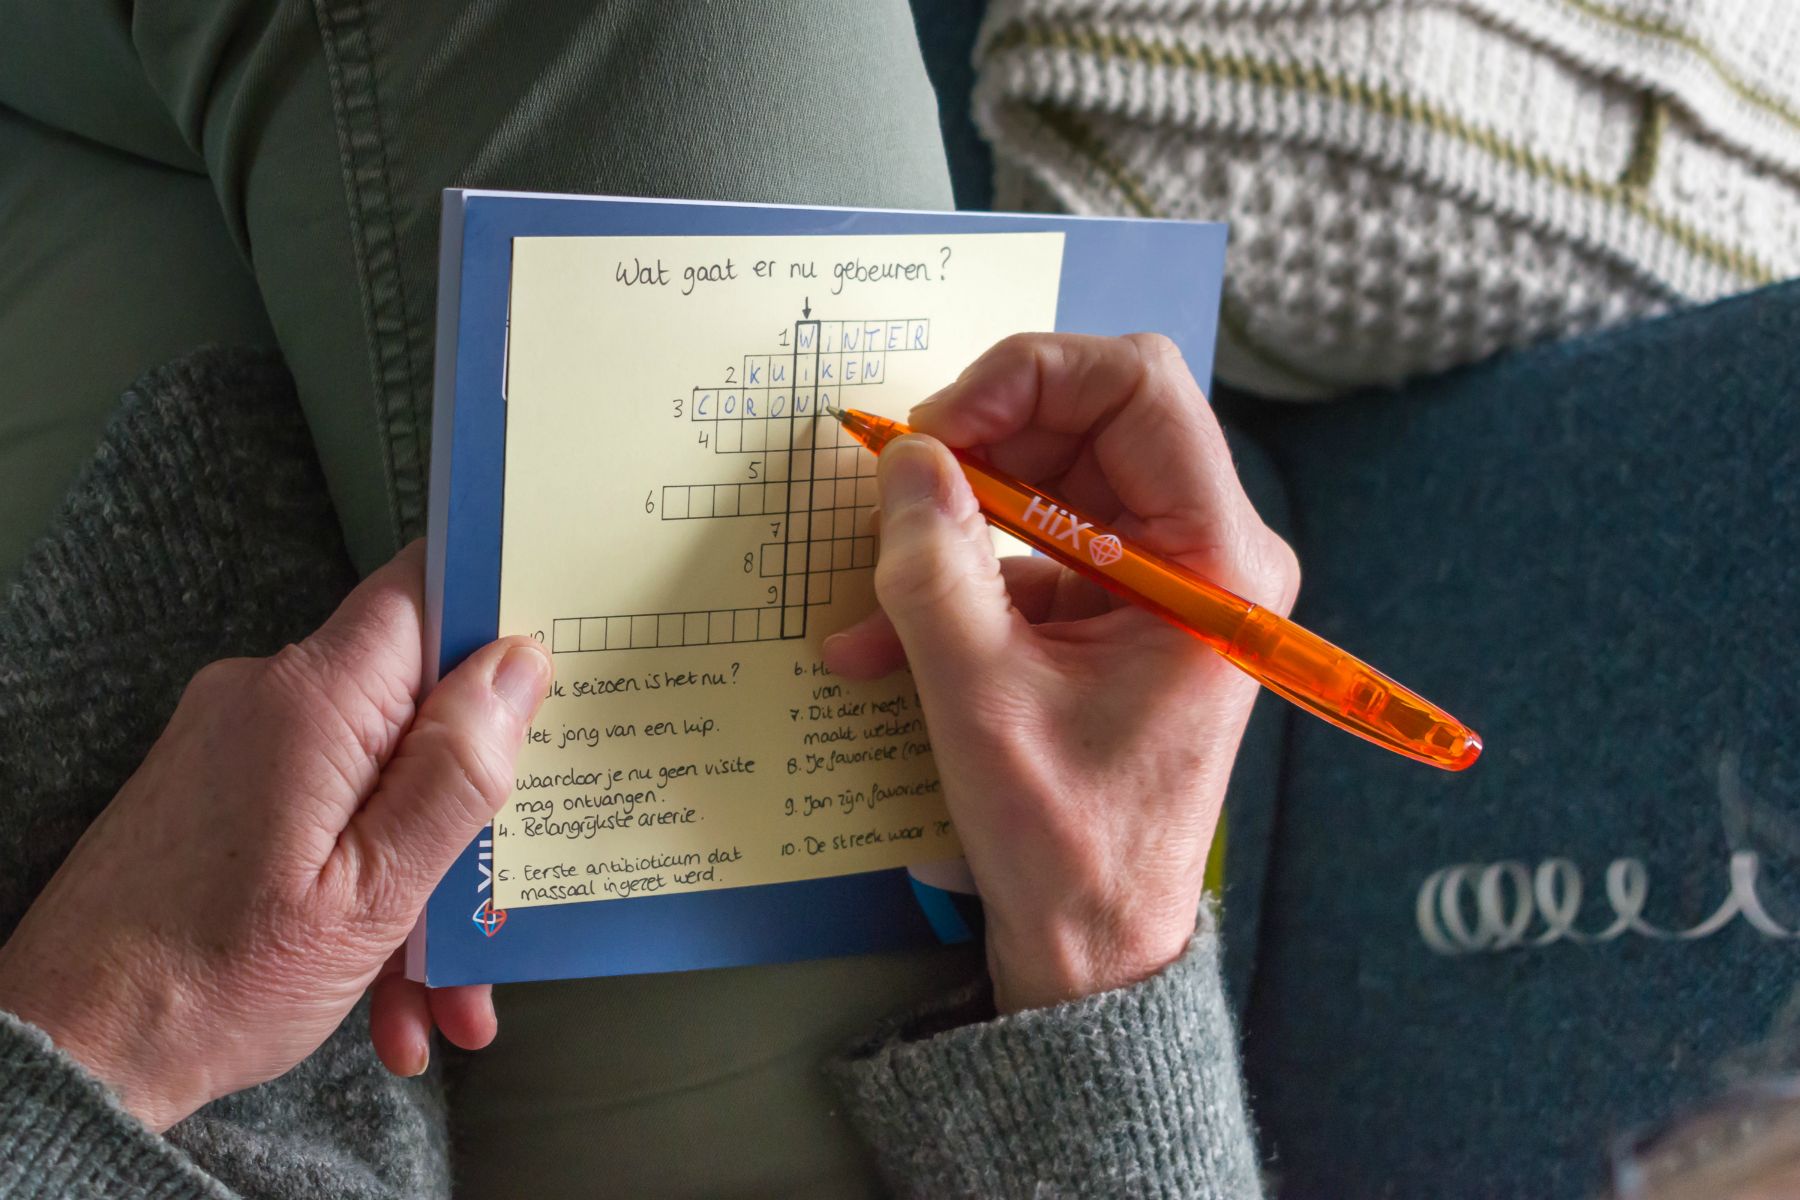 Wat gaat er nu gebeuren?
1 WiNTER
2 KUiKEN
3 CORON
4
5
6
7
8
9
10
seizoen is het nu?
Het jong van een kip.
waardoor je nu geen visite
mag ontvangen.
4. Belangrijkste arterie.
5. Eerste antibioticum dat
massaal ingezet werd.
6.
van.
7. Dit dier heeft
maakt webben
8. Je favoriete
9. Jan zijn favoriete
10. De streek waar
HiX